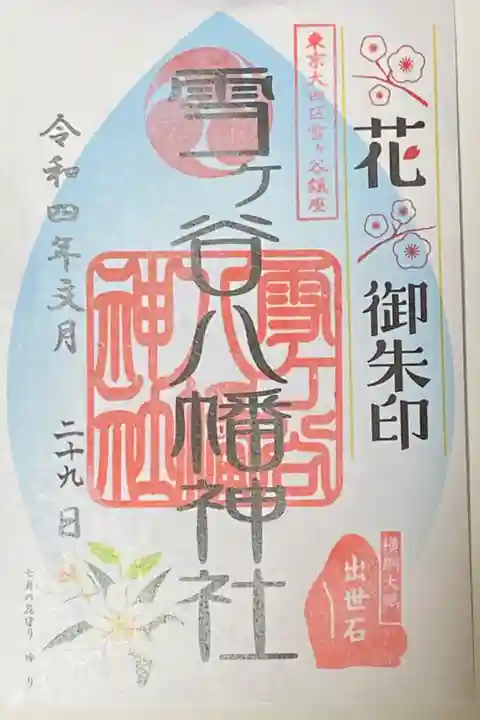 花 御朱印
東京大田区雪ヶ谷鎮座
雪ヶ谷八幡神社
雪ヶ谷
八幡
神社
令和四年文月 二十九日
横綱大鵬
出世石
七月の花守り ゆり